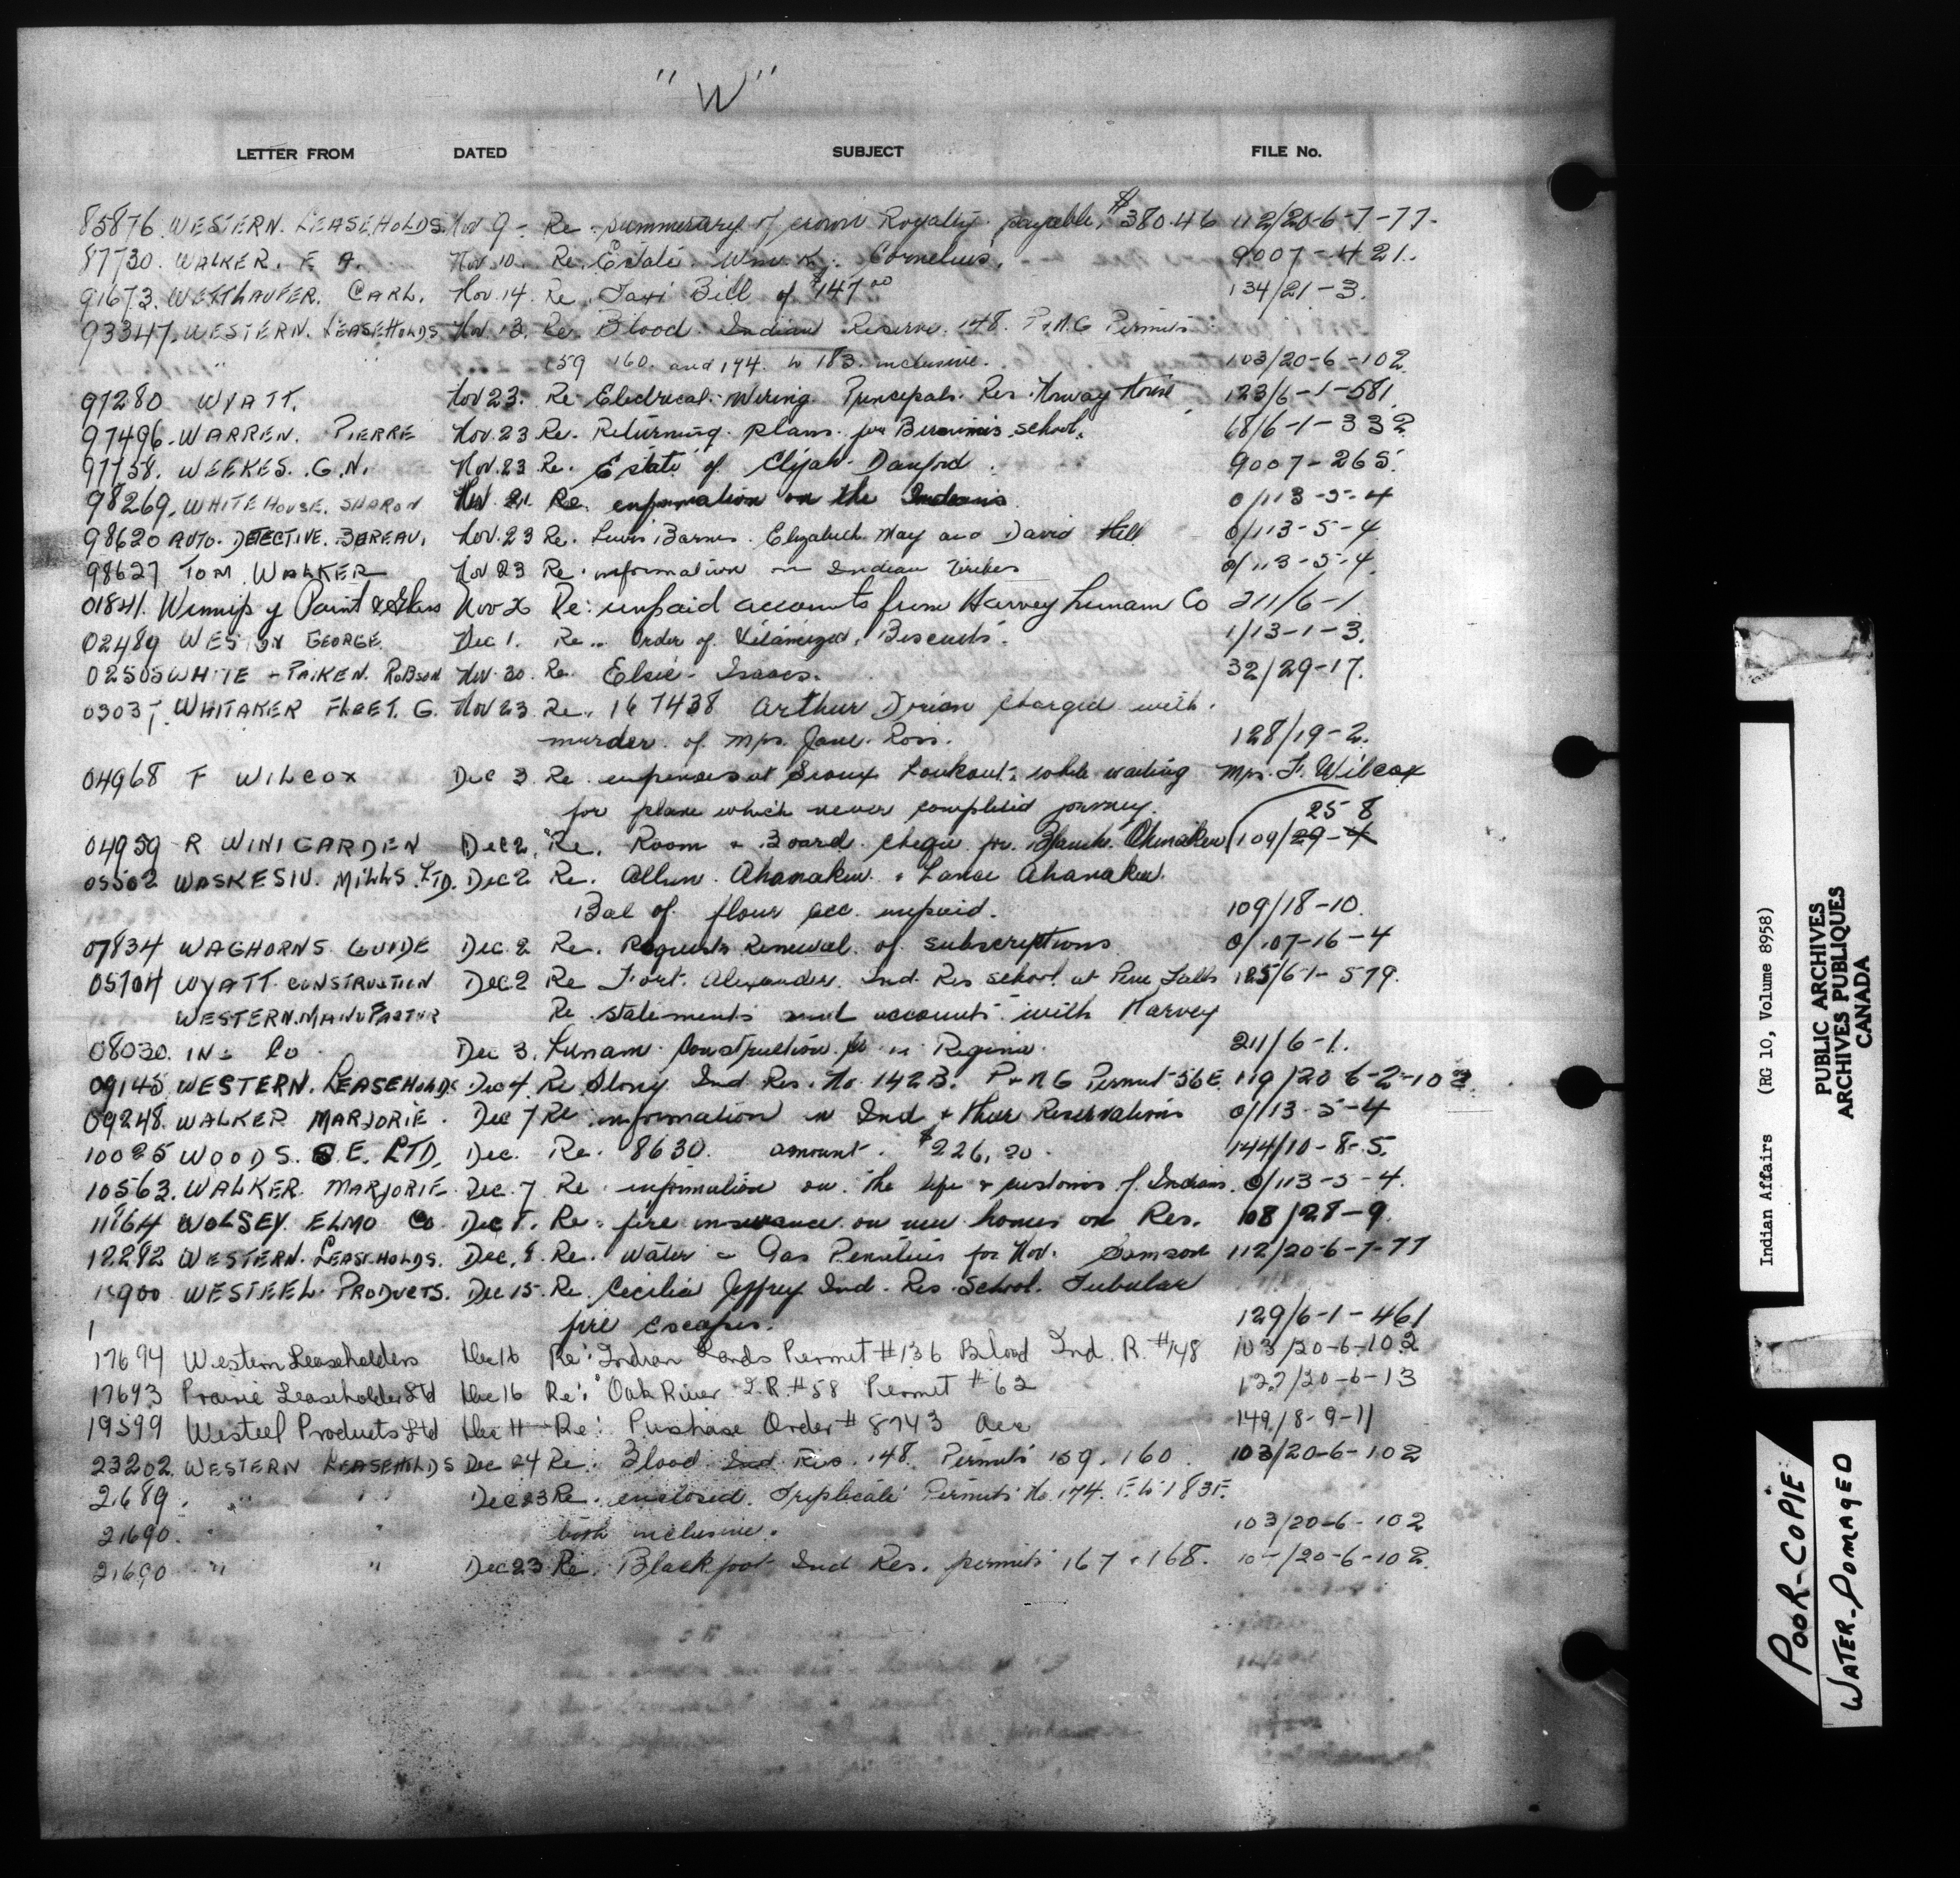 "W"
LETTER FROM DATED SUBJECT FILE No.
85876 WESTERN. LEASEHOLDS. Nov 9 - Re. summary of crown Royalty payable, $380.46 112/20-6-7-77-
87730. WALKER. F A. Nov. 10. Re. Estate. Wm. K. Cornelius. 9007-421.
91673. CARL. Nov. 14. Re. Taxi Bill of $147.00 134/21-3.
93347. WESTERN. LEASEHOLDS Nov 13. Re. Blood. Indian Reserve. 148. P&NG Permits
" " 159 160. and 174. to 183. inclusive. 103/20-6-102
97280 WYATT. Nov 23. Re. Electrical. Wiring. Principals. Res. Norway House 123/6-1-581
97496. WARREN. PIERRE Nov. 23 Re. Returning. plans. for school. 68/6-1-332
97758. WEEKES. G.N. Nov. 23 Re. Estate of Elijah. Danford. 9007-265.
98269. WHITEHOUSE. SHARON Nov 21. Re. information on the Indians 0/113-5-4
98620 AUTO. DETECTIVE. BUREAU. Nov. 23 Re. Lewis Barnes. Elizabeth May and David Hill 0/113-5-4
98627 TOM WALKER Nov 23 Re. information on Indian Tribes 0/113-5-4.
01841. Winnipeg Paint & Glass Nov 26 Re: unpaid accounts from Harvey Lunam Co 211/6-1
02489 WESTON GEORGE. Dec 1. Re.. Order of Vitaminized. Biscuits. 1/13-1-3.
02505 WHITE - PAIKEN. ROBSON Nov. 30. Re. Elsie. Isaacs. 32/29-17.
WHITAKER FLOET. G. Nov 23 Re. 167438 Arthur Dorion charged with.
murder. of Mrs. Jane. Ross. 128/19-2.
04968 F WILCOX Dec 3 Re. expenses at Sioux Lookout. while waiting Mrs. F. Wilcox
for plane which never completed journey. 25 8
04959 R WINIGARDEN Dec 2. Re. Room & Board. cheque for. Ahenakew 109/29-4
05502 WASKESIU. MILLS. LTD. Dec 2 Re. Allen. Ahanakew. & Lance Ahanakew.
Bal of. flour acc. unpaid. 109/18-10.
07834 WAGHORNS GUIDE Dec. 2 Re. Requests Renewal. of subscriptions 0/107-16-4
05704 WYATT. CONSTRUCTION Dec. 2 Re Fort. Alexander. Ind. Res school. at Pine Falls 125/6-1-579.
WESTERN. MANUFACTUR Re. statements and accounts with Harvey
08030. ING Co Dec 3. Lunam. Construction. Co in Regina. 211/6-1.
09145 WESTERN. LEASEHOLDS Dec 4. Re. Stony Ind Res. No. 142B. P&NG Permit 56E. 119/20 6-2-10
09248. WALKER MARJORIE. Dec 7 Re. information on Ind & their Reservations 0/113-5-4
10025 WOODS. G.E. LTD. Dec. Re. 8630. amount. $226.20. 144/10-8-5.
10563. WALKER. MARJORIE Dec. 7 Re. information on. the life & customs of Indians. 0/113-5-4.
11164 WOLSEY. ELMO Co Dec 8. Re. fire insurance on new homes on Res. 108/28-9.
12282 WESTERN. LEASEHOLDS. Dec. 8. Re. Water & Gas for Nov. Samson 112/20-6-7-77
15900 WESTEEL. PRODUCTS. Dec 15. Re. Cecilia Jeffrey Ind. Res. School. Tubular
fire escapes. 129/6-1-461
17694 Western Leaseholders Dec 16 Re: Indian Lands Permit #136 Blood Ind. R. #148 103/20-6-102
17693 Prairie Leaseholder Ltd Dec 16 Re: Oak River I.R. #58 Permit #62 127/20-6-13
19599 Westeel Products Ltd Dec 11 Re: Purchase Order # 8743 Acc 149/8-9-11
23202. WESTERN LEASEHOLDS Dec 24 Re. Blood. Ind Res. 148. Permits 159. 160. 103/20-6-102
21689. " " Dec 23 Re. enclosed. Triplicate Permits No. 174. F. to 183F.
21690. " " both inclusive. 103/20-6-102
21690 " " Dec 23 Re. Blackfoot Ind Res. permits 167 & 168. /20-6-102.
Indian Affairs (RG 10, Volume 8958)
PUBLIC ARCHIVES
ARCHIVES PUBLIQUES
CANADA
POOR-COPIE
WATER-DOMAGED